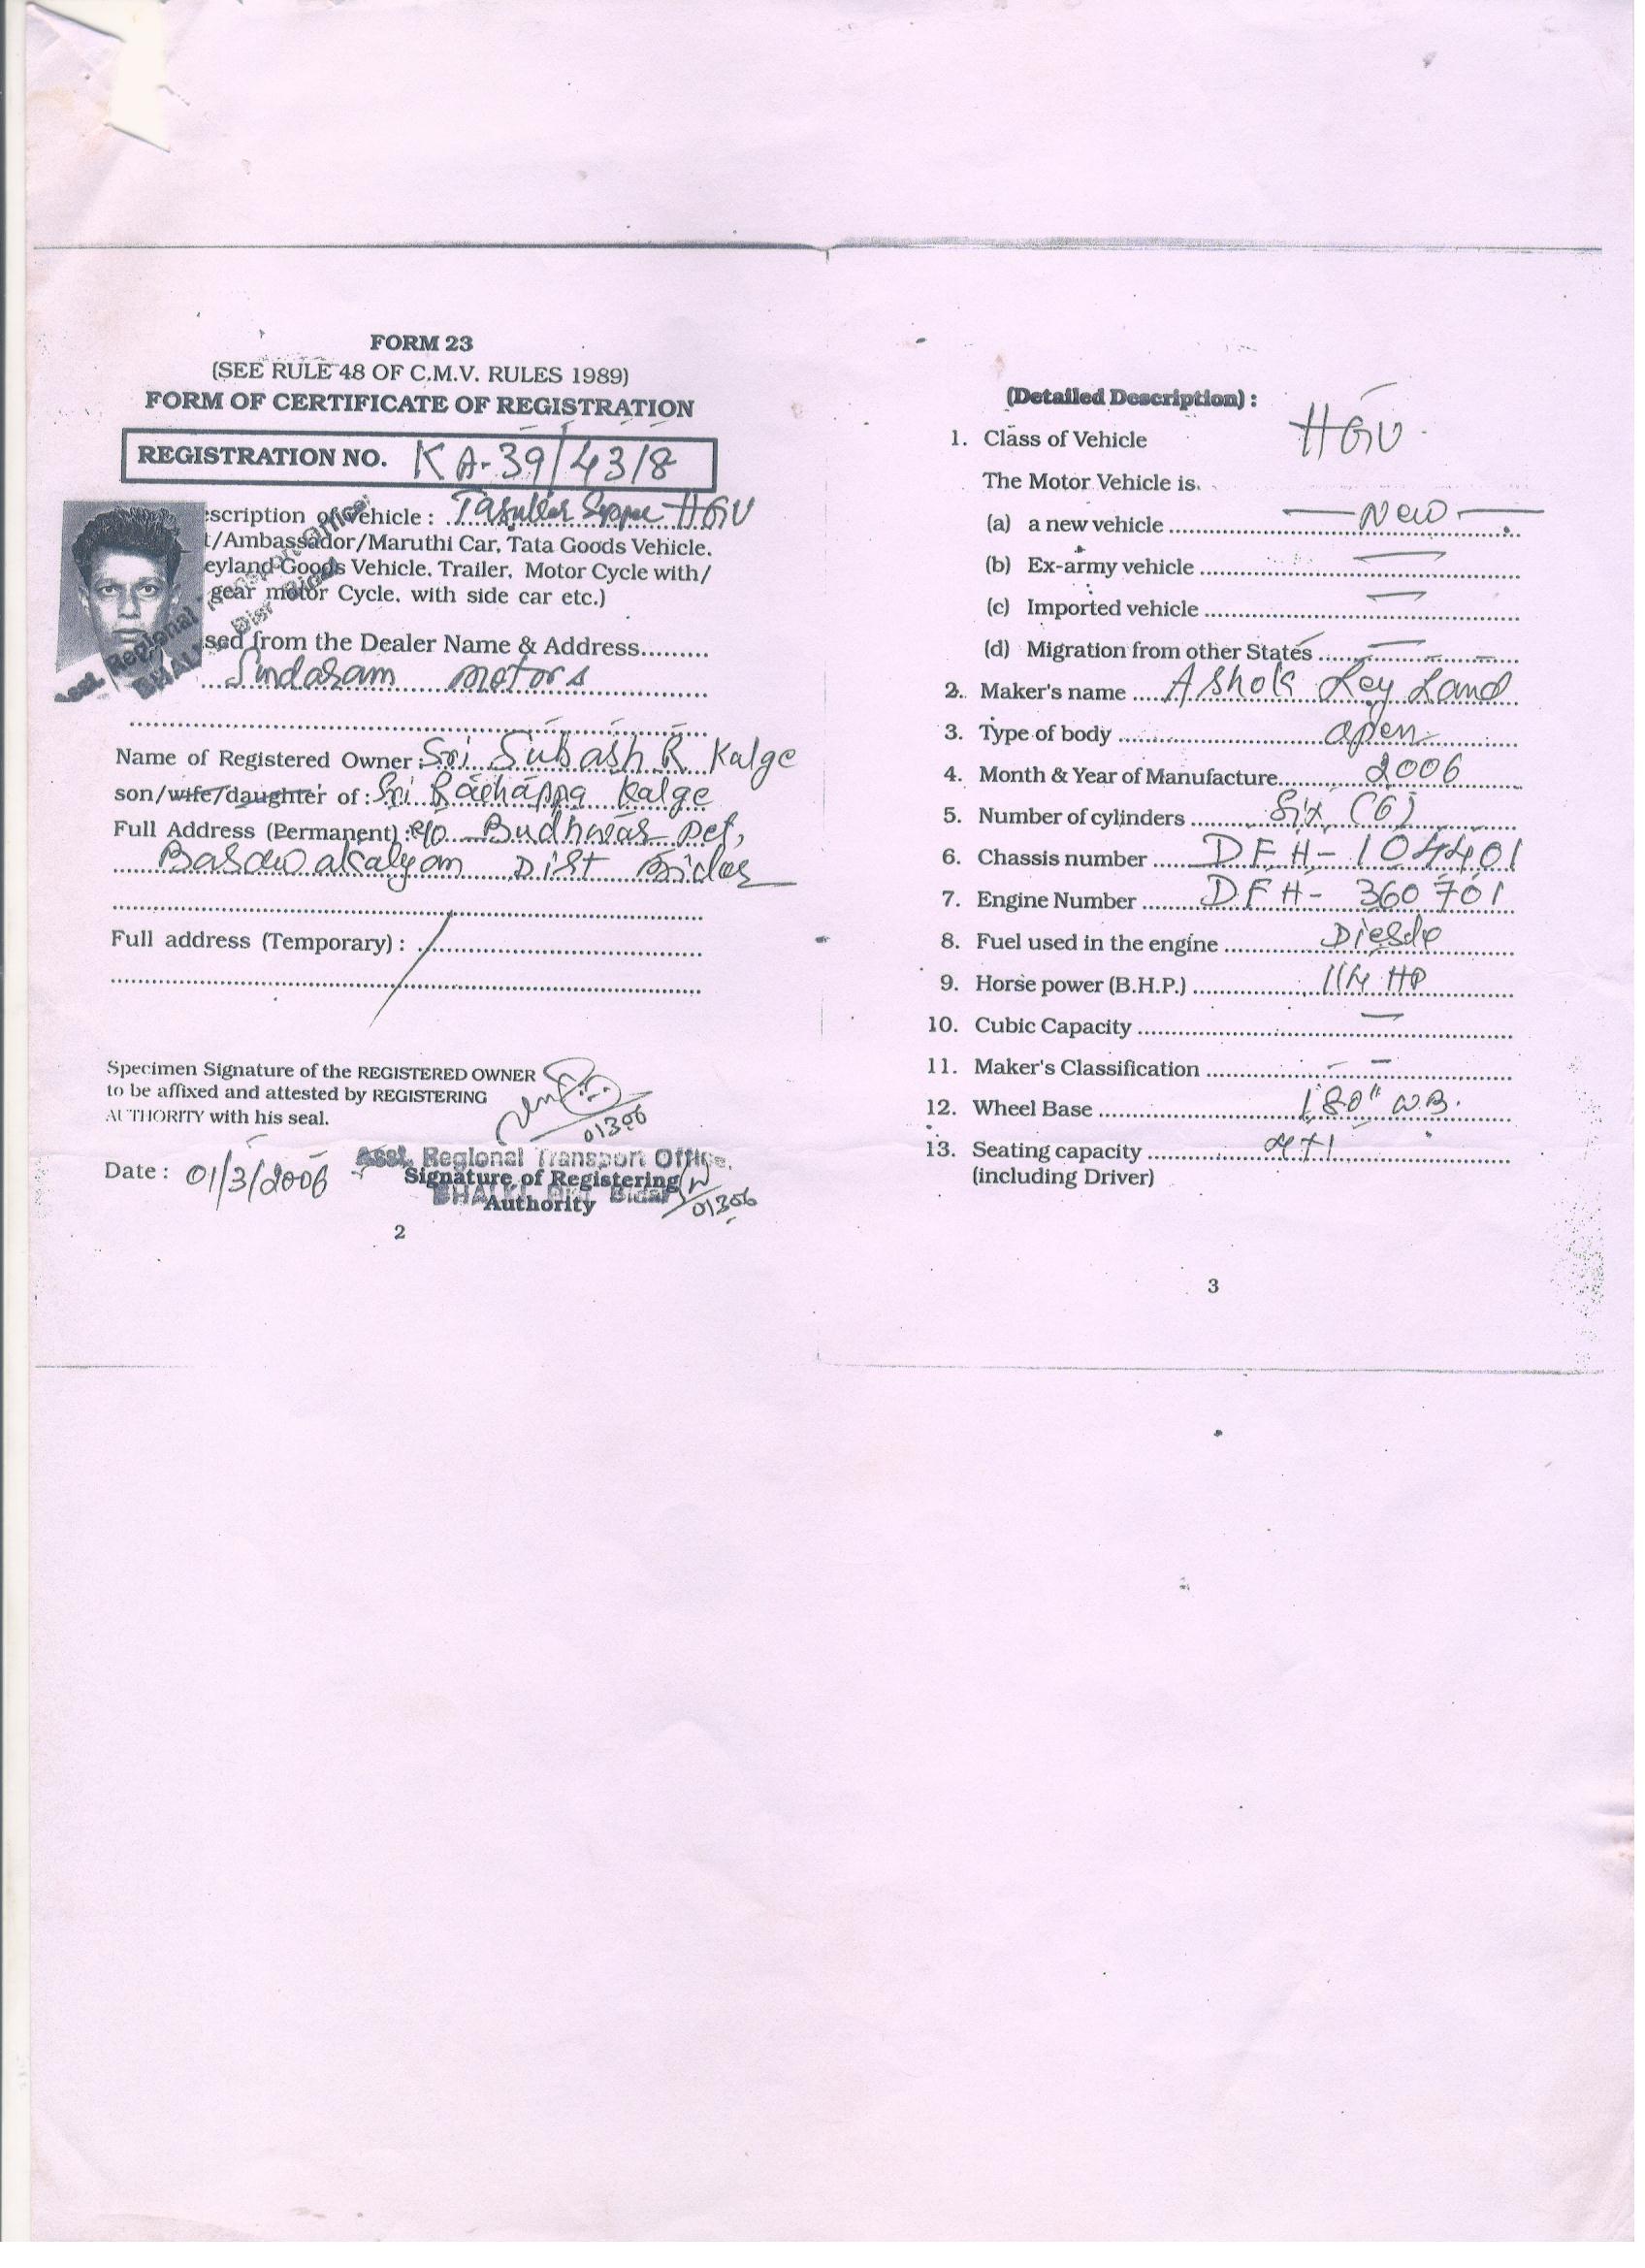 FORM 23
(SEE RULE 48 OF C.M.V. RULES 1989)
FORM OF CERTIFICATE OF REGISTRATION
REGISTRATION NO. KA-39/4318
escription of Vehicle : HGV
t/Ambassador/Maruthi Car, Tata Goods Vehicle.
eyland Goods Vehicle, Trailer, Motor Cycle with/
gear motor Cycle, with side car etc.)
sed from the Dealer Name & Address.........
Sundaram motors
Name of Registered Owner : Sri Subash R Kalge
son/wife/daughter of : Sri Rachappa Kalge
Full Address (Permanent) : R/o Budhwar Pet,
Basawakalyan Dist Bidar
Full address (Temporary) :
Specimen Signature of the REGISTERED OWNER
to be affixed and attested by REGISTERING
AUTHORITY with his seal.
01306
Asst. Regional Transport Office,
Date : 01/3/2006 Signature of Registering
BHALKI Dist Bidar
Authority 01306
2
(Detailed Description) :
1. Class of Vehicle HGV
The Motor Vehicle is.
(a) a new vehicle — New —
(b) Ex-army vehicle —
(c) Imported vehicle —
(d) Migration from other States —
2. Maker's name Ashok Ley Land
3. Type of body open
4. Month & Year of Manufacture 2006
5. Number of cylinders Six (6)
6. Chassis number DFH-104401
7. Engine Number DFH-360701
8. Fuel used in the engine
9. Horse power (B.H.P.) HP
10. Cubic Capacity —
11. Maker's Classification —
12. Wheel Base 180" WB.
13. Seating capacity
(including Driver)
3